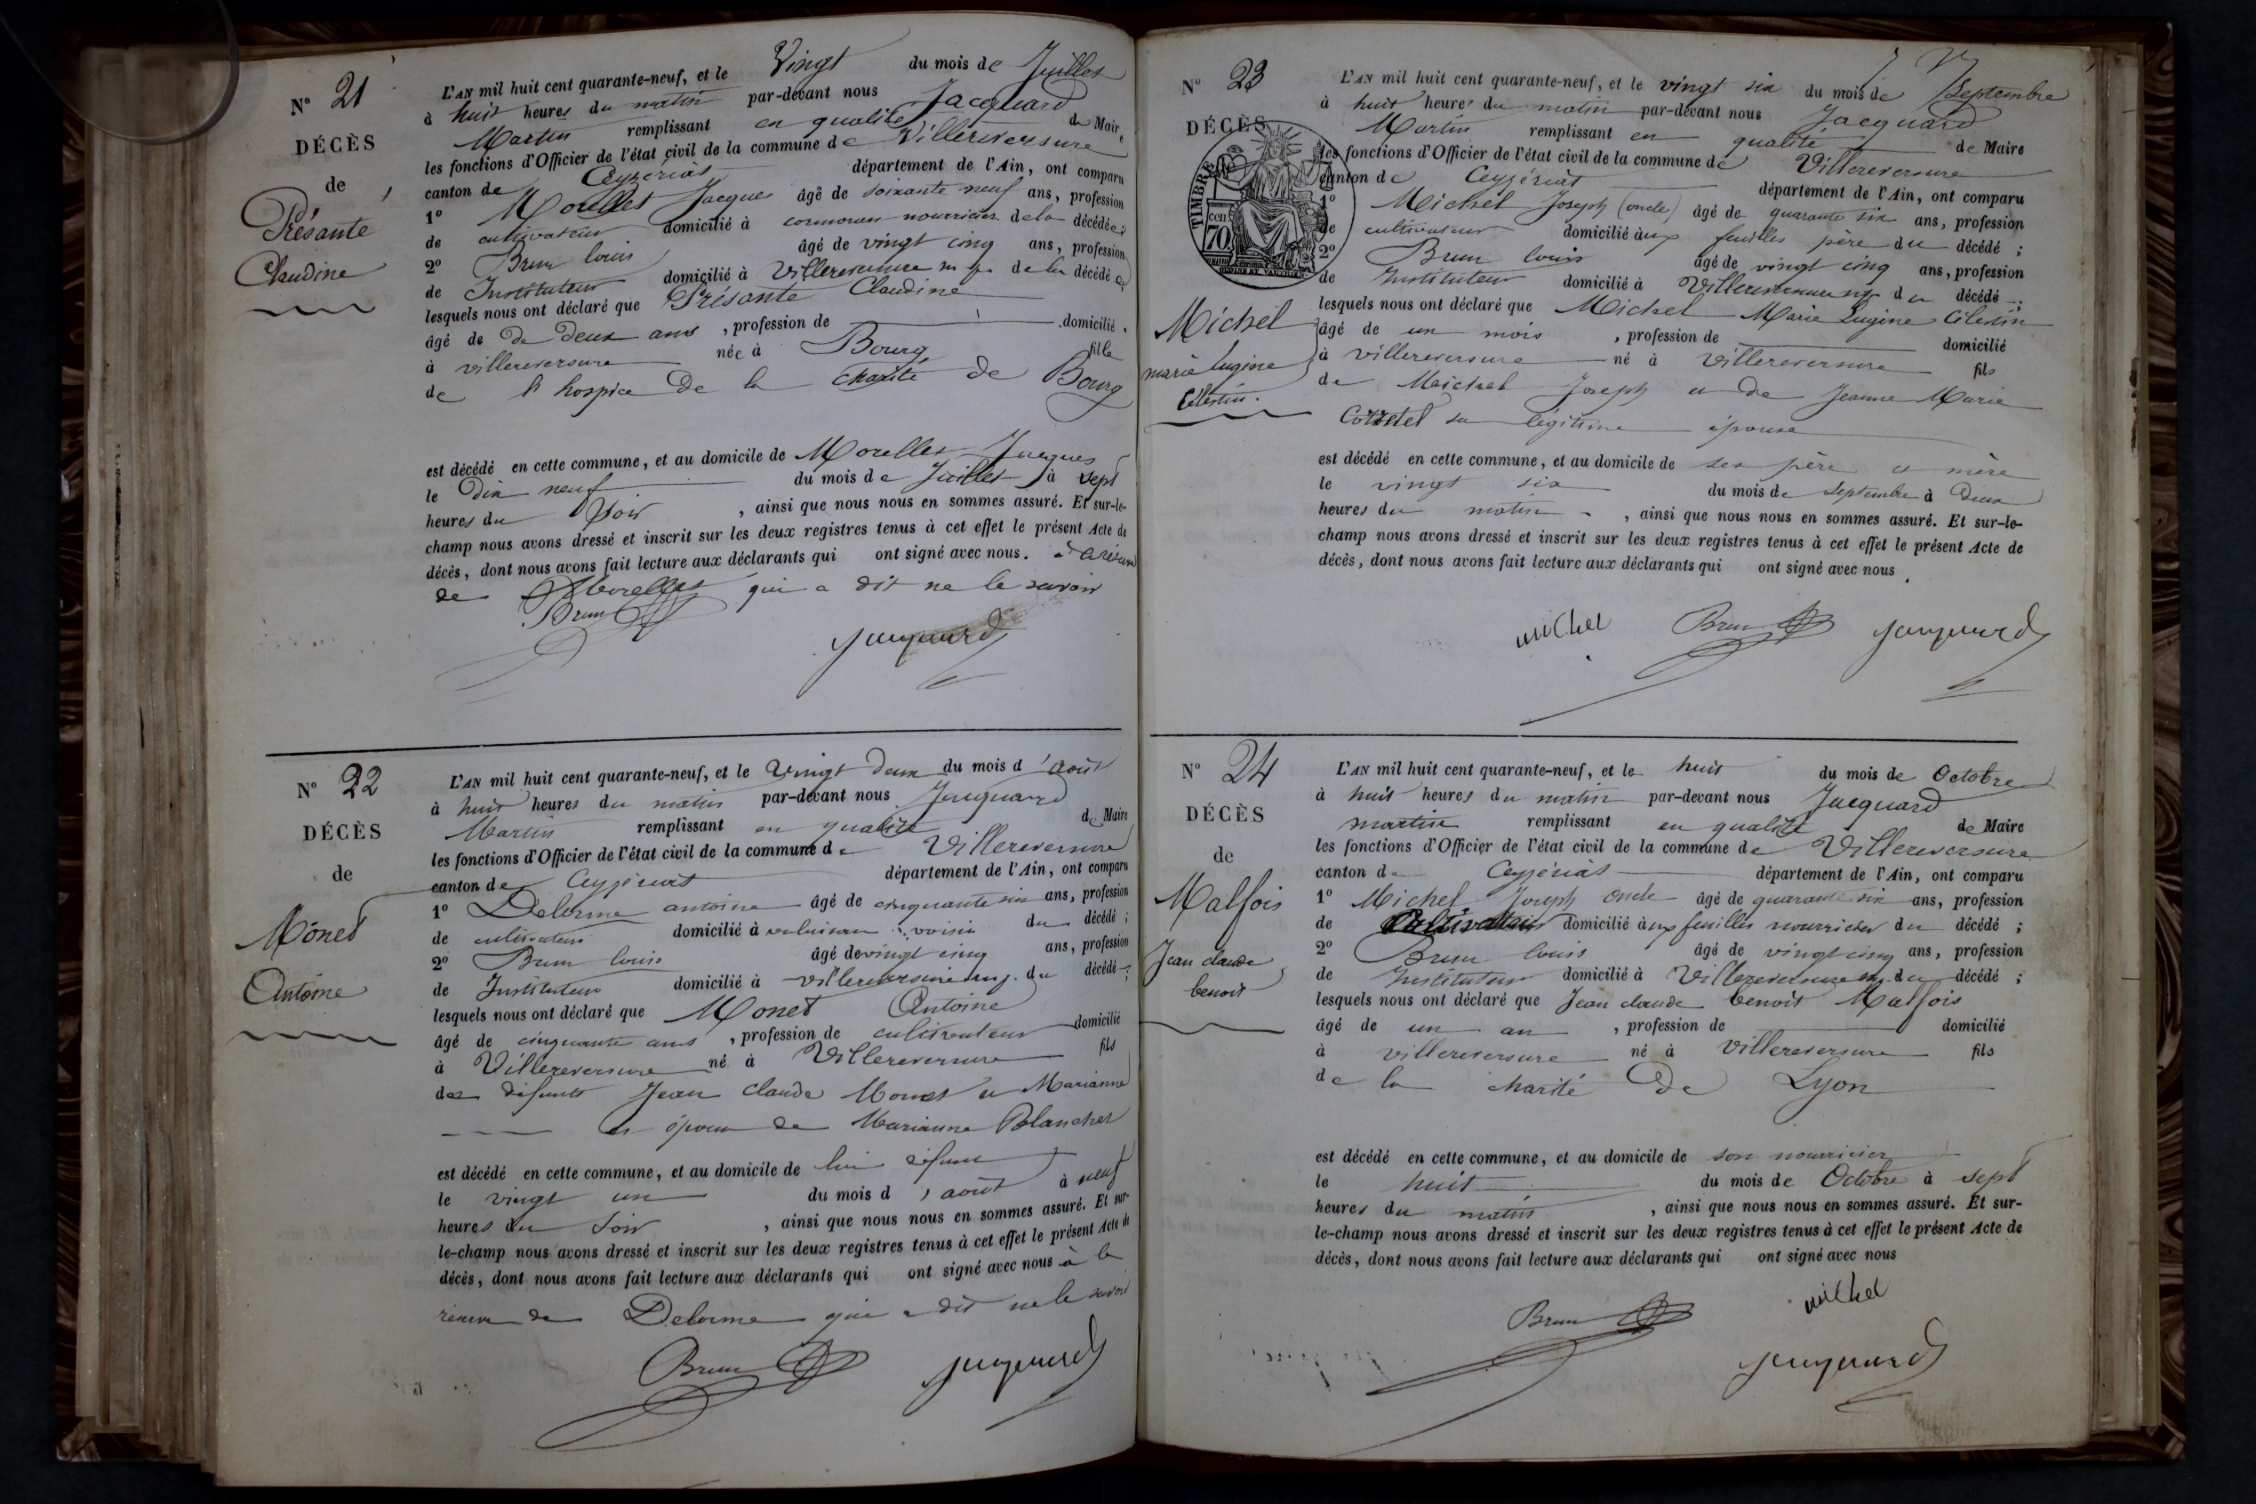 N° 21
DÉCÈS
de
Présante
Claudine
L'AN mil huit cent quarante-neuf, et le Vingt du mois de Juillet
à huit heures du matin par-devant nous Jacquard
Martin remplissant en qualité de Maire
les fonctions d'Officier de l'état civil de la commune de Villereversure
canton de Ceyzériat département de l'Ain, ont comparu
1° Morellet Jacques âgé de soixante neuf ans, profession
de cultivateur domicilié à nourricier de la décédée ;
2° Brun louis âgé de vingt cinq ans, profession
de Instituteur domicilié à Villereversure de la décédée ;
lesquels nous ont déclaré que Présante Claudine
âgé de De deux ans , profession de domicilié
à villereversure née à Bourg fille
de l'hospice De la charité de Bourg
est décédé en cette commune, et au domicile de Morellet Jacques
le Dix neuf du mois de Juillet à sept
heures du soir , ainsi que nous nous en sommes assuré. Et sur-le-
champ nous avons dressé et inscrit sur les deux registres tenus à cet effet le présent Acte de
décès, dont nous avons fait lecture aux déclarants qui ont signé avec nous.
de Morellet qui a dit ne le savoir
Brun
Jacquard
N° 22
DÉCÈS
de
Monet
Antoine
L'AN mil huit cent quarante-neuf, et le Vingt deux du mois d'août
à huit heures du matin par-devant nous Jacquard
Martin remplissant en qualité de Maire
les fonctions d'Officier de l'état civil de la commune de Villereversure
canton de Ceyzériat département de l'Ain, ont comparu
1° Delorme antoine âgé de cinquante six ans, profession
de cultivateur domicilié à voisin du décédé ;
2° Brun louis âgé de vingt cinq ans, profession
de Instituteur domicilié à villereversure du décédé ;
lesquels nous ont déclaré que Monet Antoine
âgé de cinquante ans , profession de cultivateur domicilié
à Villereversure né à Villereversure fils
des défunts Jean Claude Monet et Marianne
et époux de Marianne Blanchet
est décédé en cette commune, et au domicile de lui défunt
le vingt un du mois d'août à neuf
heures du soir , ainsi que nous nous en sommes assuré. Et sur-
le-champ nous avons dressé et inscrit sur les deux registres tenus à cet effet le présent Acte de
décès, dont nous avons fait lecture aux déclarants qui ont signé avec nous à la
réserve de Delorme qui a dit ne le savoir
Brun Jacquard
N° 23
DÉCÈS
TIMBRE
cen
70
Michel
marie Eugène
Célestin.
L'AN mil huit cent quarante-neuf, et le vingt six du mois de Septembre
à huit heures du matin par-devant nous Jacquard
Martin remplissant en qualité de Maire
les fonctions d'Officier de l'état civil de la commune de Villereversure
canton de Ceyzériat département de l'Ain, ont comparu
1° Michel Joseph (oncle) âgé de quarante six ans, profession
de cultivateur domicilié aux feuilles père du décédé ;
2° Brun louis âgé de vingt cinq ans, profession
de Instituteur domicilié à Villereversure du décédé ;
lesquels nous ont déclaré que Michel Marie Eugène Célestin
âgé de un mois , profession de domicilié
à villereversure né à villereversure fils
de Michel Joseph et de Jeanne Marie
sa légitime épouse
est décédé en cette commune, et au domicile de ses père et mère
le vingt six du mois de Septembre à Deux
heures du matin , ainsi que nous nous en sommes assuré. Et sur-le-
champ nous avons dressé et inscrit sur les deux registres tenus à cet effet le présent Acte de
décès, dont nous avons fait lecture aux déclarants qui ont signé avec nous.
michel Brun Jacquard
N° 24
DÉCÈS
de
Malfois
Jean claude
benoit
L'AN mil huit cent quarante-neuf, et le huit du mois de Octobre
à huit heures du matin par-devant nous Jacquard
martin remplissant en qualité de Maire
les fonctions d'Officier de l'état civil de la commune de Villereversure
canton de Ceyzériat département de l'Ain, ont comparu
1° Michel Joseph oncle âgé de quarante six ans, profession
de Cultivateur domicilié aux feuilles nourricier du décédé ;
2° Brun louis âgé de vingt cinq ans, profession
de Instituteur domicilié à Villereversure du décédé ;
lesquels nous ont déclaré que Jean claude benoit Malfois
âgé de un an , profession de domicilié
à villereversure né à villereversure fils
de la charité De Lyon
est décédé en cette commune, et au domicile de son nourricier
le huit du mois de Octobre à sept
heures du matin , ainsi que nous nous en sommes assuré. Et sur-
le-champ nous avons dressé et inscrit sur les deux registres tenus à cet effet le présent Acte de
décès, dont nous avons fait lecture aux déclarants qui ont signé avec nous
michel
Brun
Jacquard